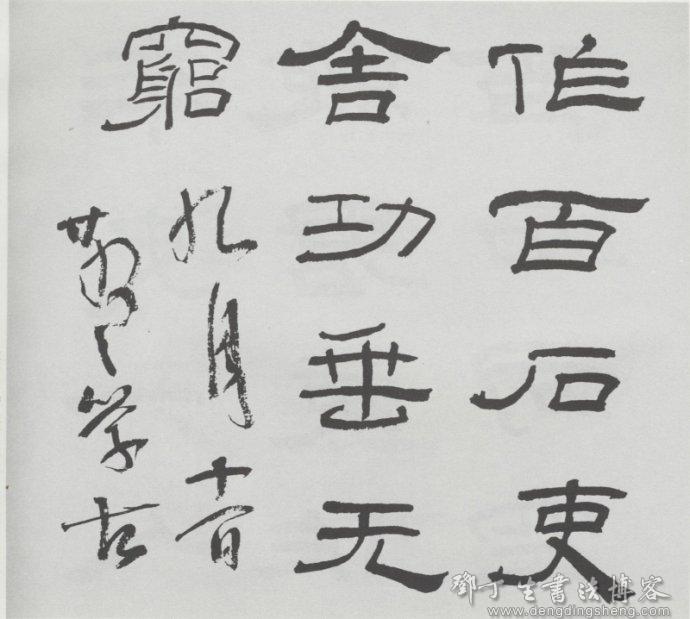 作百石吏
舍功垂无
窮
九月十一日
学古
鄧丁生書法博客
www.dengdingsheng.com